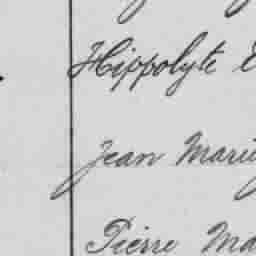 Hippolyte
Jean Marie
Pierre Ma